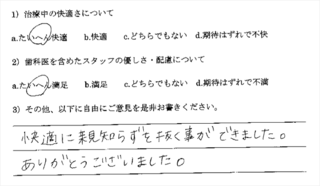 1) 治療中の快適さについて
a.たいへん快適 b.快適 c.どちらでもない d.期待はずれで不快
2) 歯科医を含めたスタッフの優しさ・配慮について
a.たいへん満足 b.満足 c.どちらでもない d.期待はずれで不満
3) その他、以下に自由にご意見を是非お書きください。
快適に親知らずを抜く事ができました。
ありがとうございました。